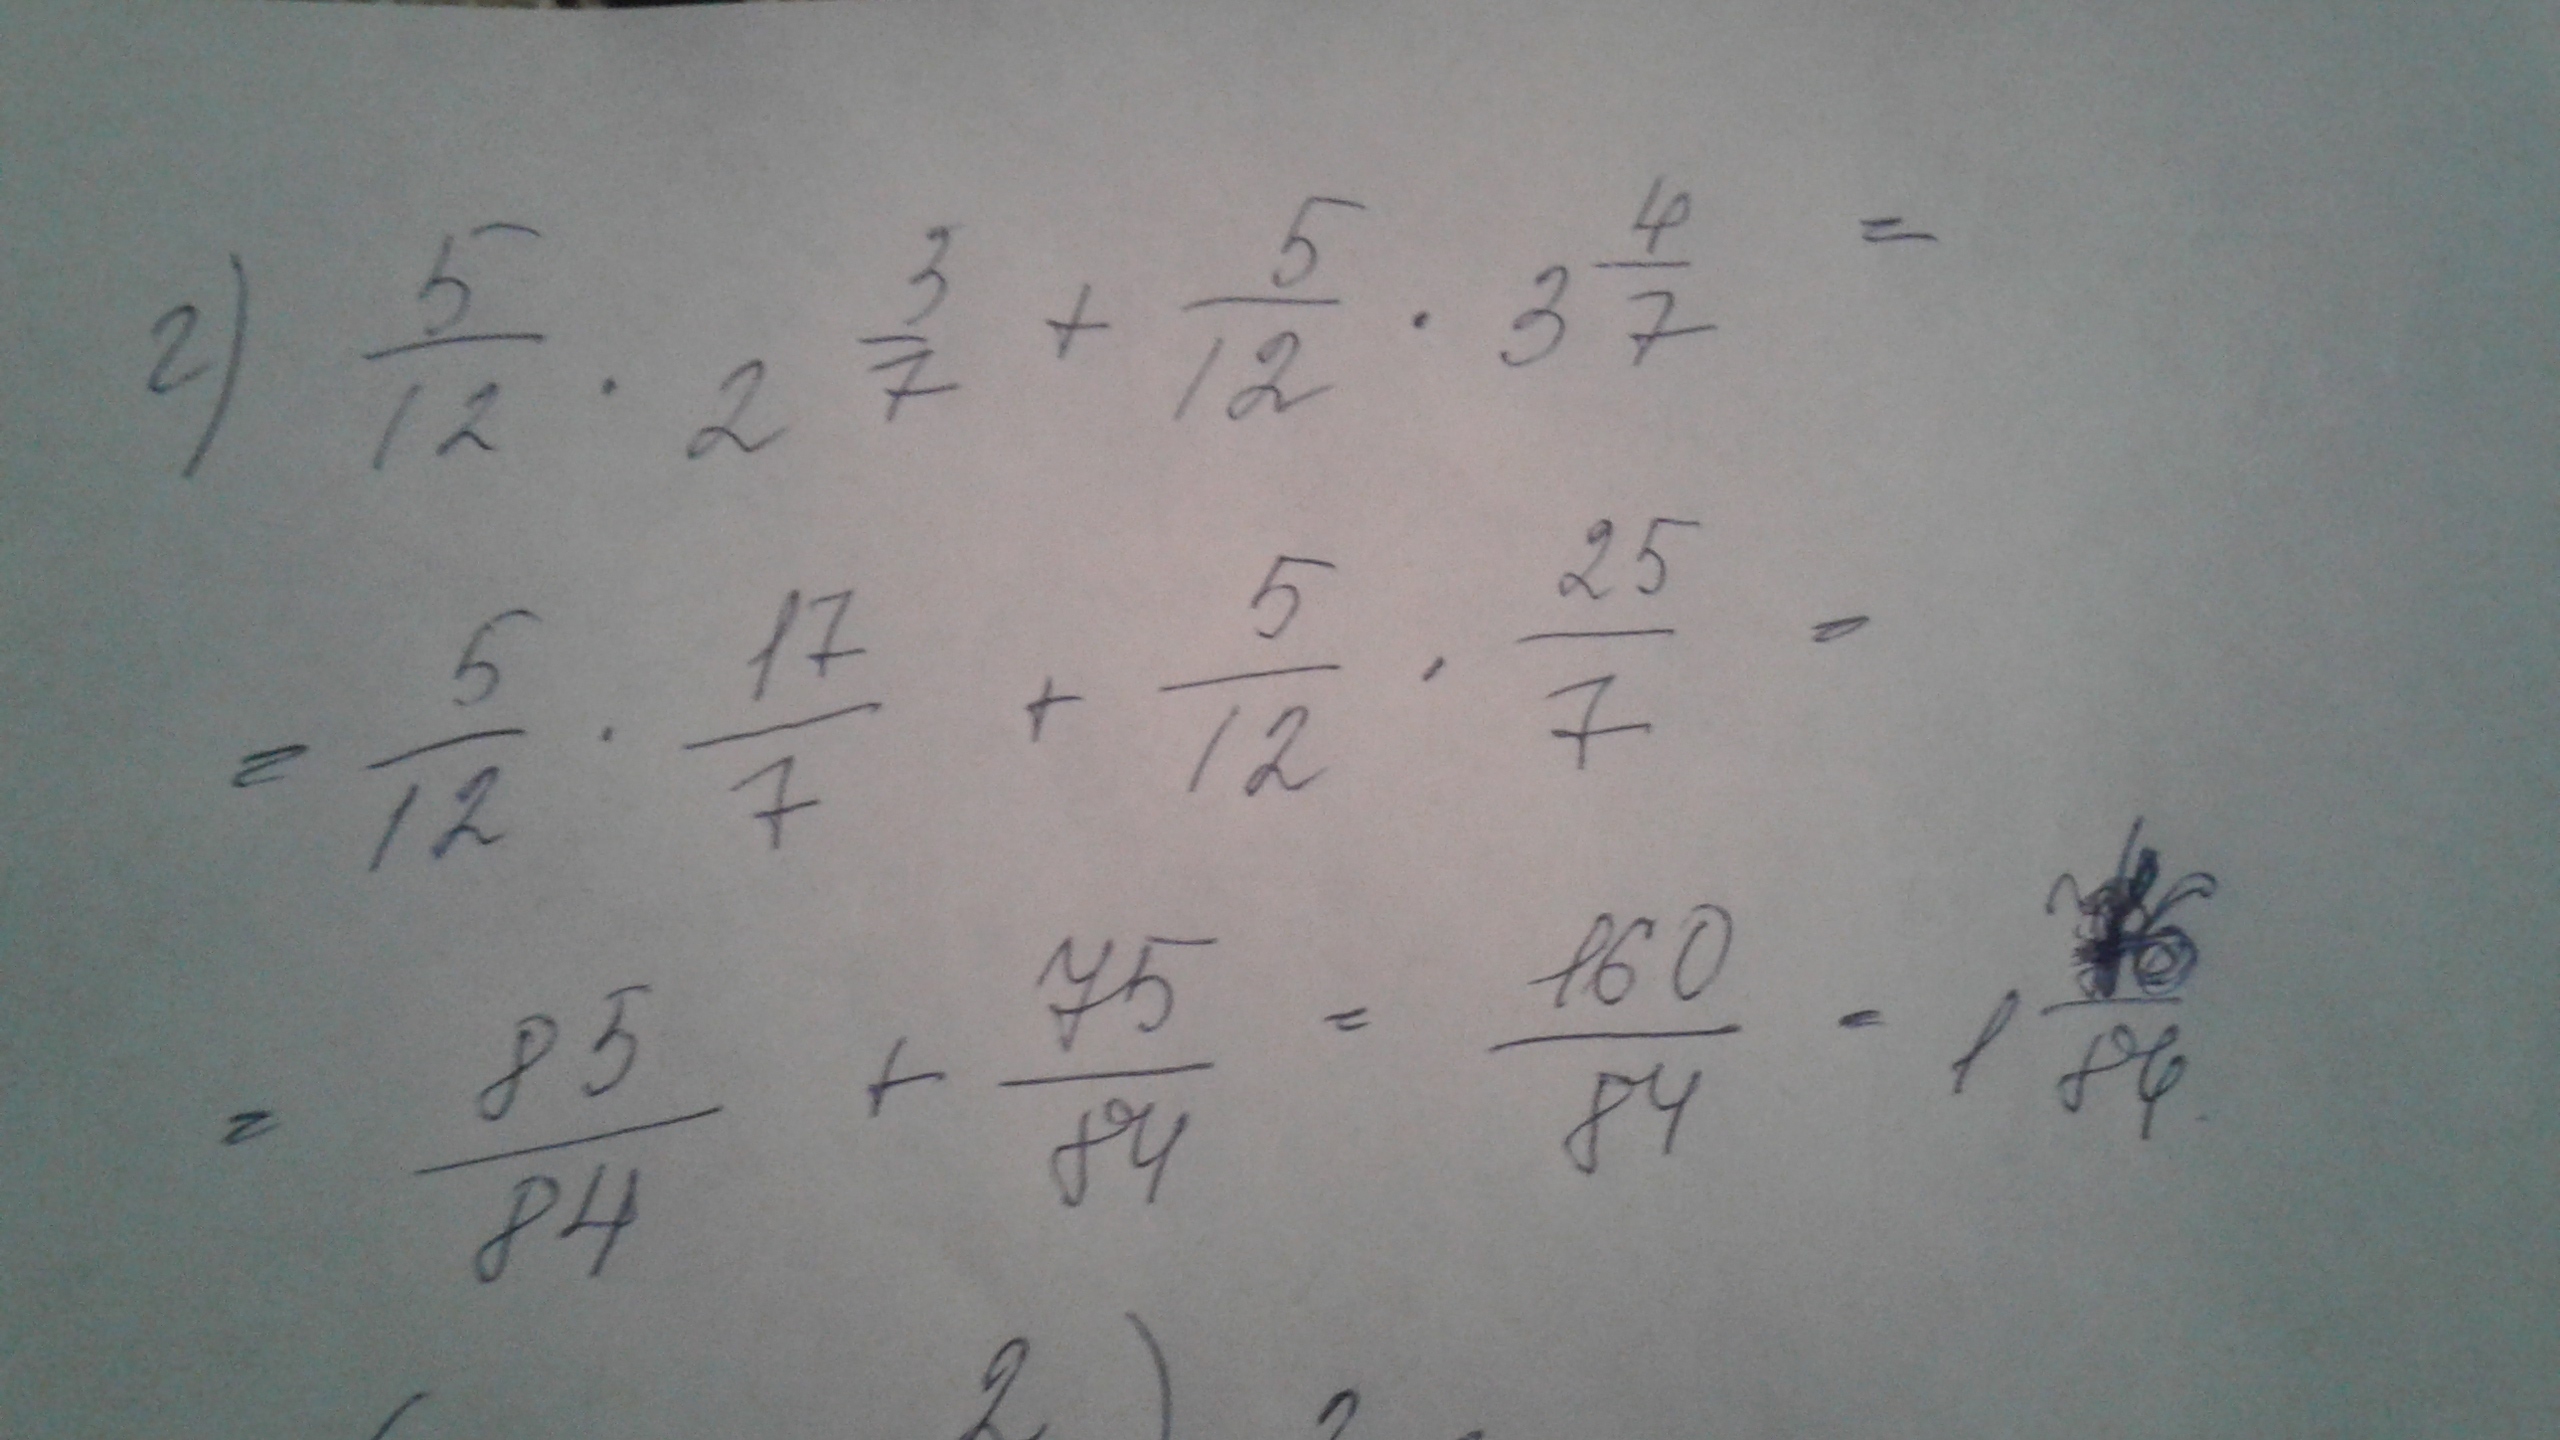 2) 5/12 · 2 3/7 + 5/12 · 3 4/7 =
= 5/12 · 17/7 + 5/12 · 25/7 =
= 85/84 + 75/84 = 160/84 = 1 /84
2)